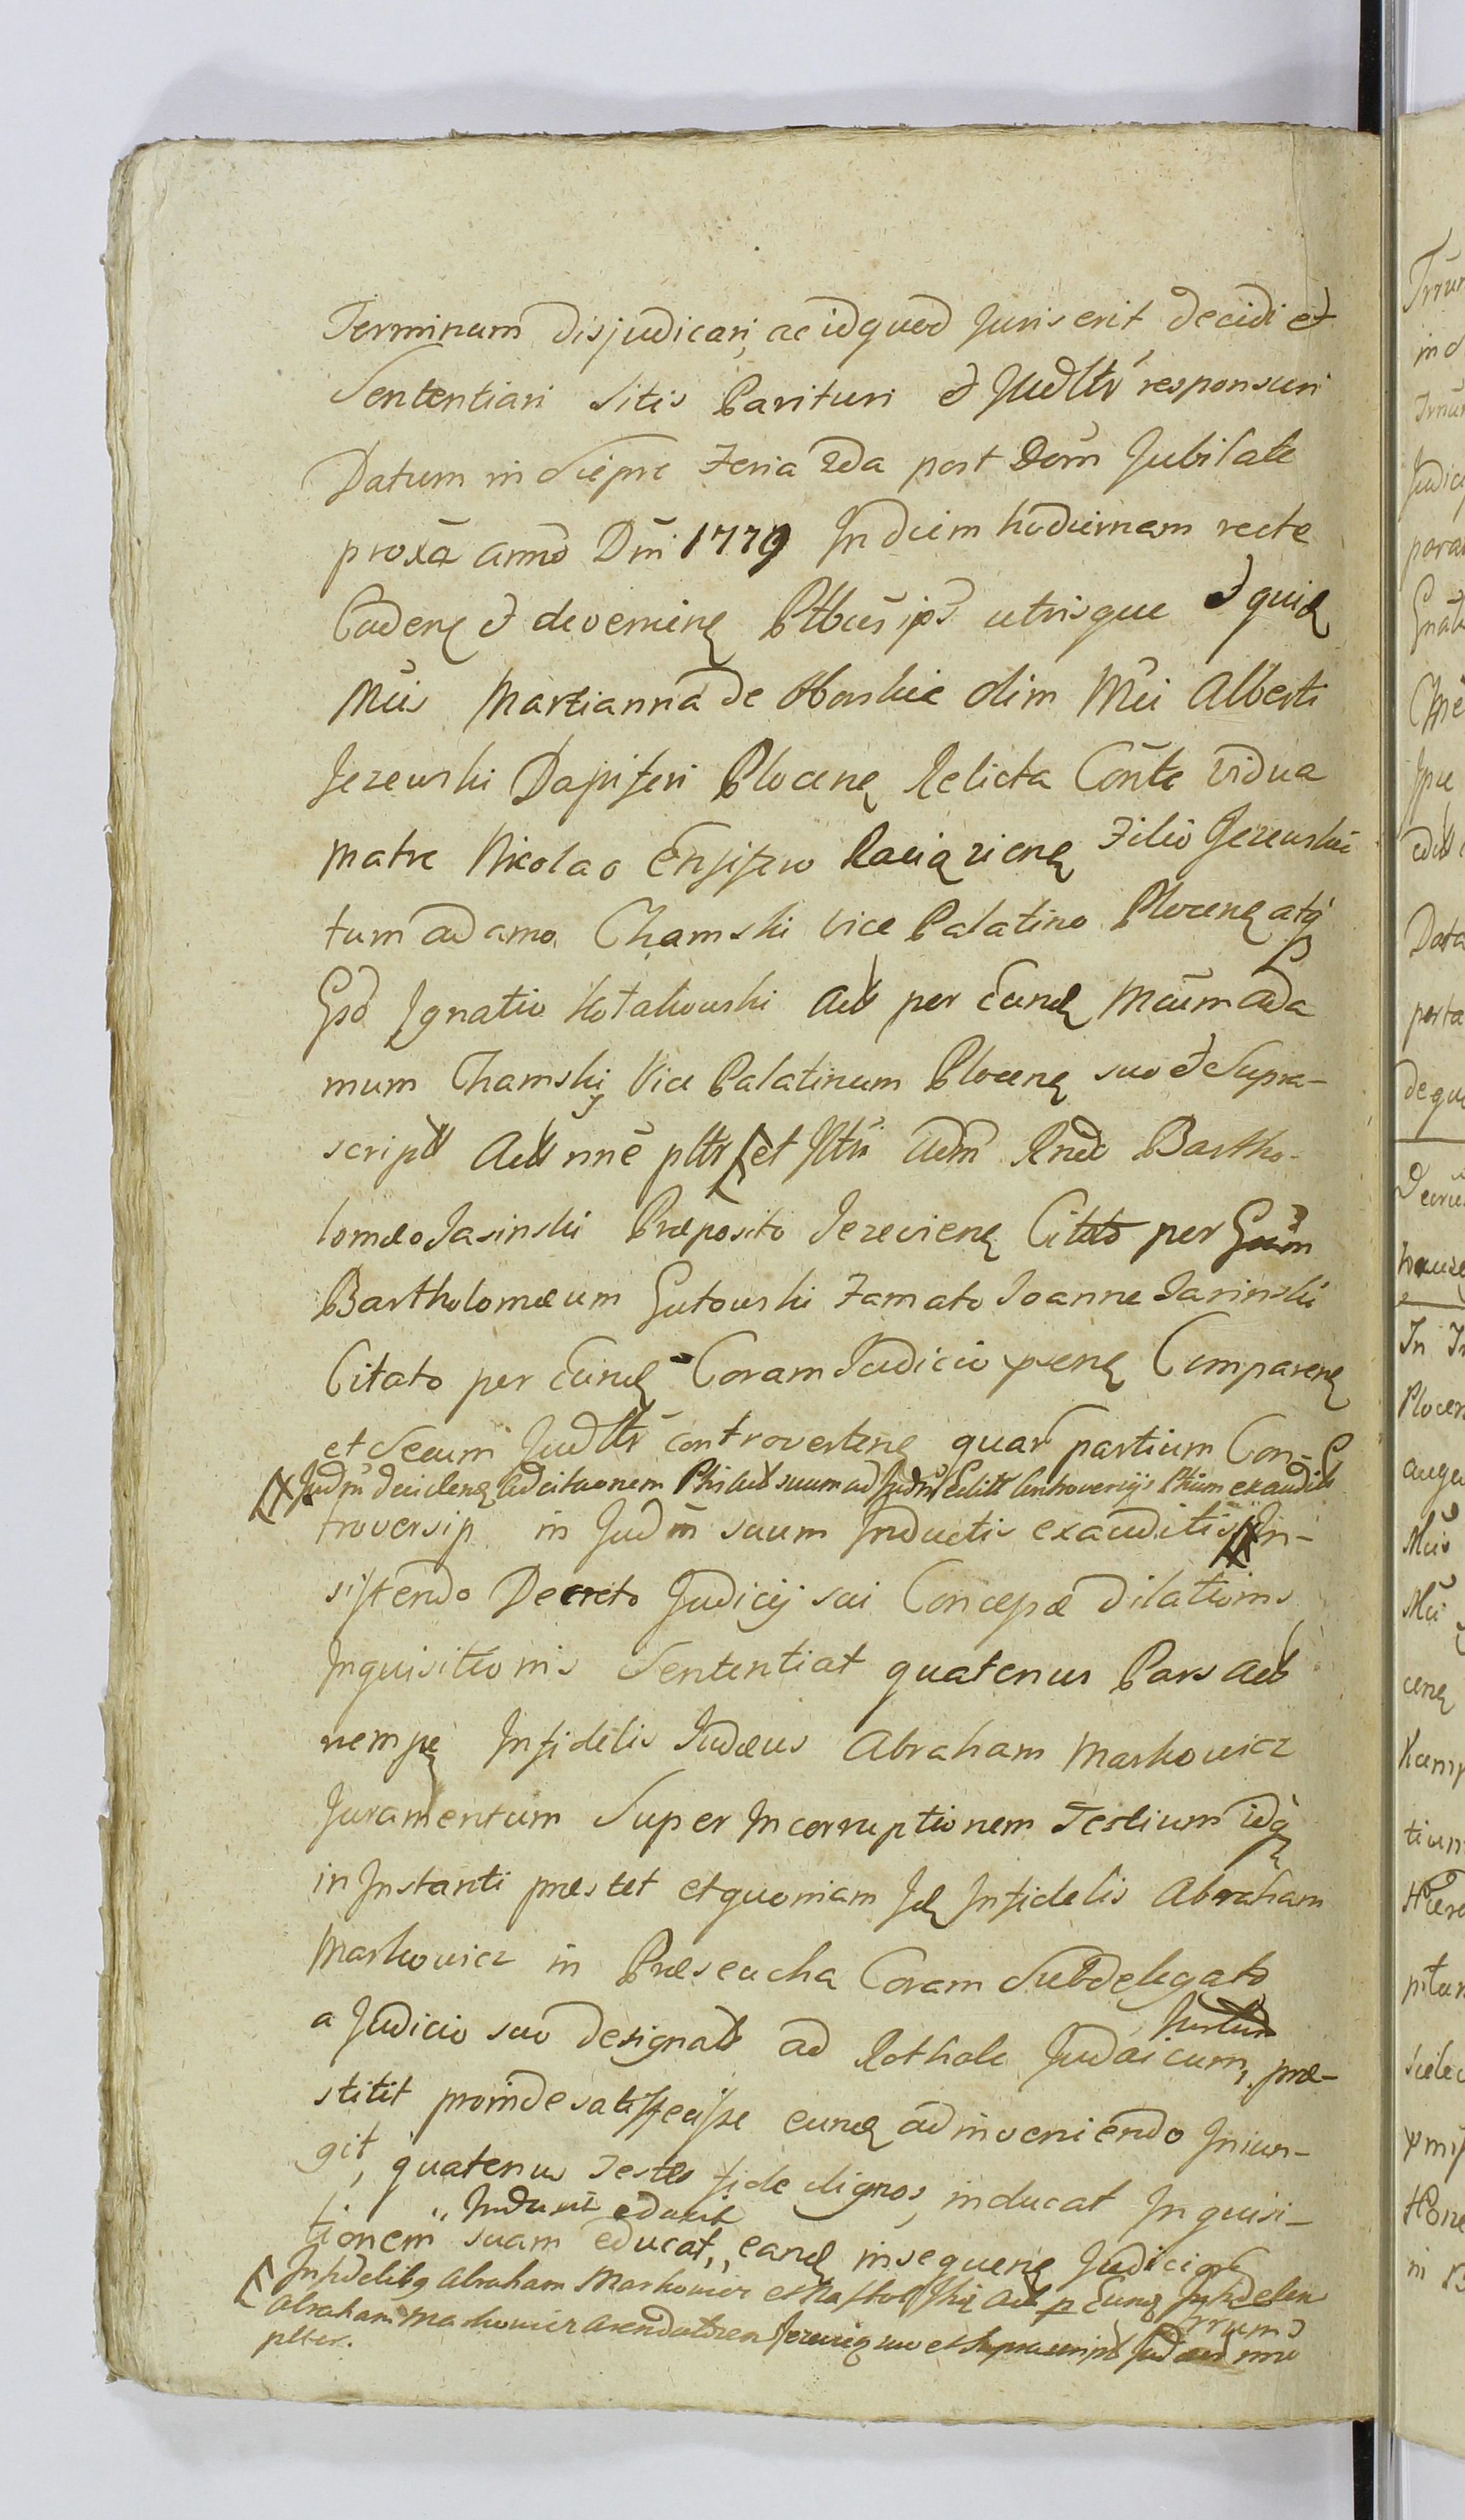 Terminum disjudicari, ac idquod Juris erit decidi et
Sententiari Sitis Parituri et Judltr responsuri
Datum in Sierpc Feria 2da post Dom Jubilate
proxa anno Dni 1779 In diem hodiernam recte
Caden et devenien Ptbus ips utrisque et quid
Mcis Martianna de Oborskie olim Mci Alberti
Jezewski Dapiferi Plocen Relicta Conte vidua
Matre Nicolao Ensifero Raciązien Filio Jezewskie
tum Adamo Chamski Vice Palatino Plocen atq
Gsd Ignatio Kotakowski Act per Eund Mcum Ada
mum Chamski Vice Palatinum Plocen suo et Supra-
script Act nne pltr et Jltri Adm Rndo Bartho-
lomæo Jasinski Præposito Jezevien Citto per Gsum
Bartholomæum Gutowski Famato Joanne Jasinski
Citato per Eund Coram Judicio psen Comparen
et Secum Judltr controverten quar partium Con-
Judm deciden ad citationem Phi Act suum ad Judm Editt Controversijs Phium exaudit
troversip in Judm suum Inductis exauditis In-
sistendo Decreto Judicij sui Concepæ dilationis
Inquisitionis Sententiat quatenus Pars Act
nempe Infidelis Judæus Abraham Markowicz
Juramentum Super Incorruptionem Testium idq
in Instanti præstet et quoniam Id Infidelis Abraham
Markowicz in Præseucha Coram Subdelegato
a Judicio suo designato ad Rothale Judaicum, præ-
stitit proinde satisfecisse eund ad inveniendo Iniun-
git, quatenus Testes fide dignos, inducat Inquisi-
edaxit
tionem suam educat, eand insequen Judicio
Infidelibq Abraham Markowicz et Act p Eund Infidelem
Abraham Markowicz Arendatorem Jezevien suo et suprascript nne
plter.